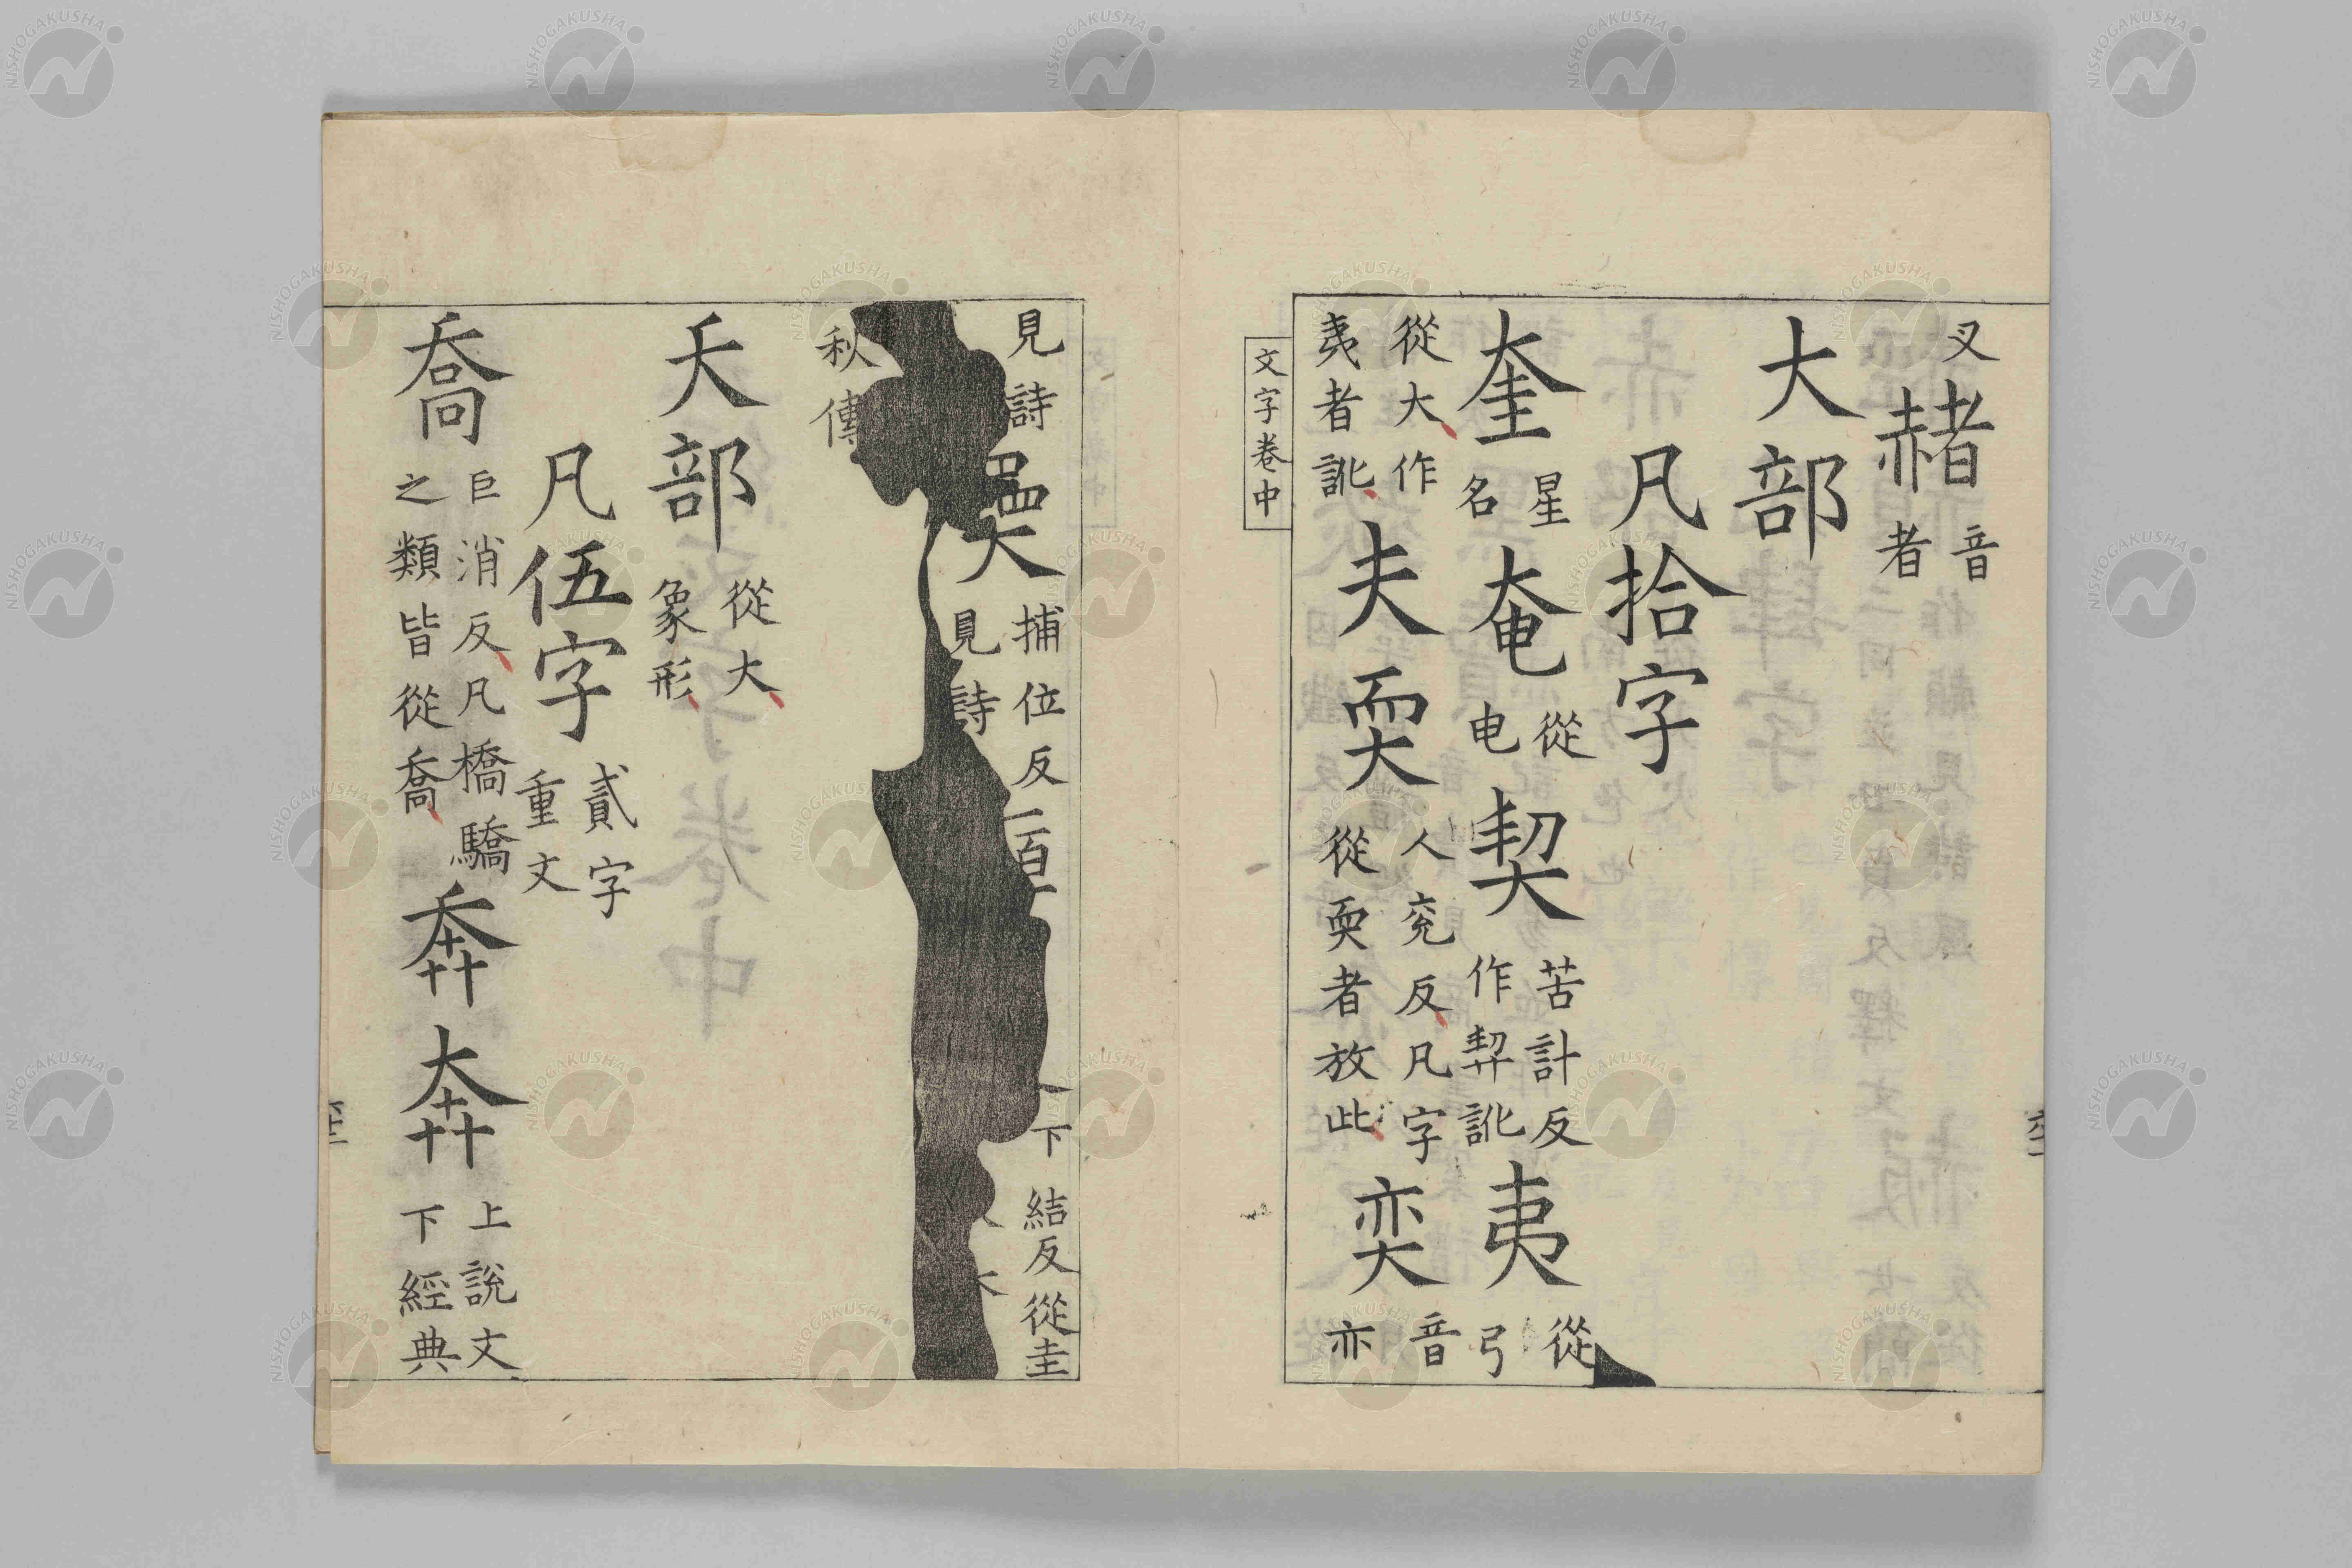 叉赭音者
大部
凡拾字
奎星名奄從电契苦計反作訛夷從弓
從大作夷者訛夫耎人兖反凡字從耎者放此奕音亦
文字卷中
見詩奰捕位反見詩下結反從圭
秋傳
夭部從大象形
凡伍字貳字重文
喬巨消反凡橋驕之類皆從喬奔奔上說文下經典
NISHOGAKUSHA